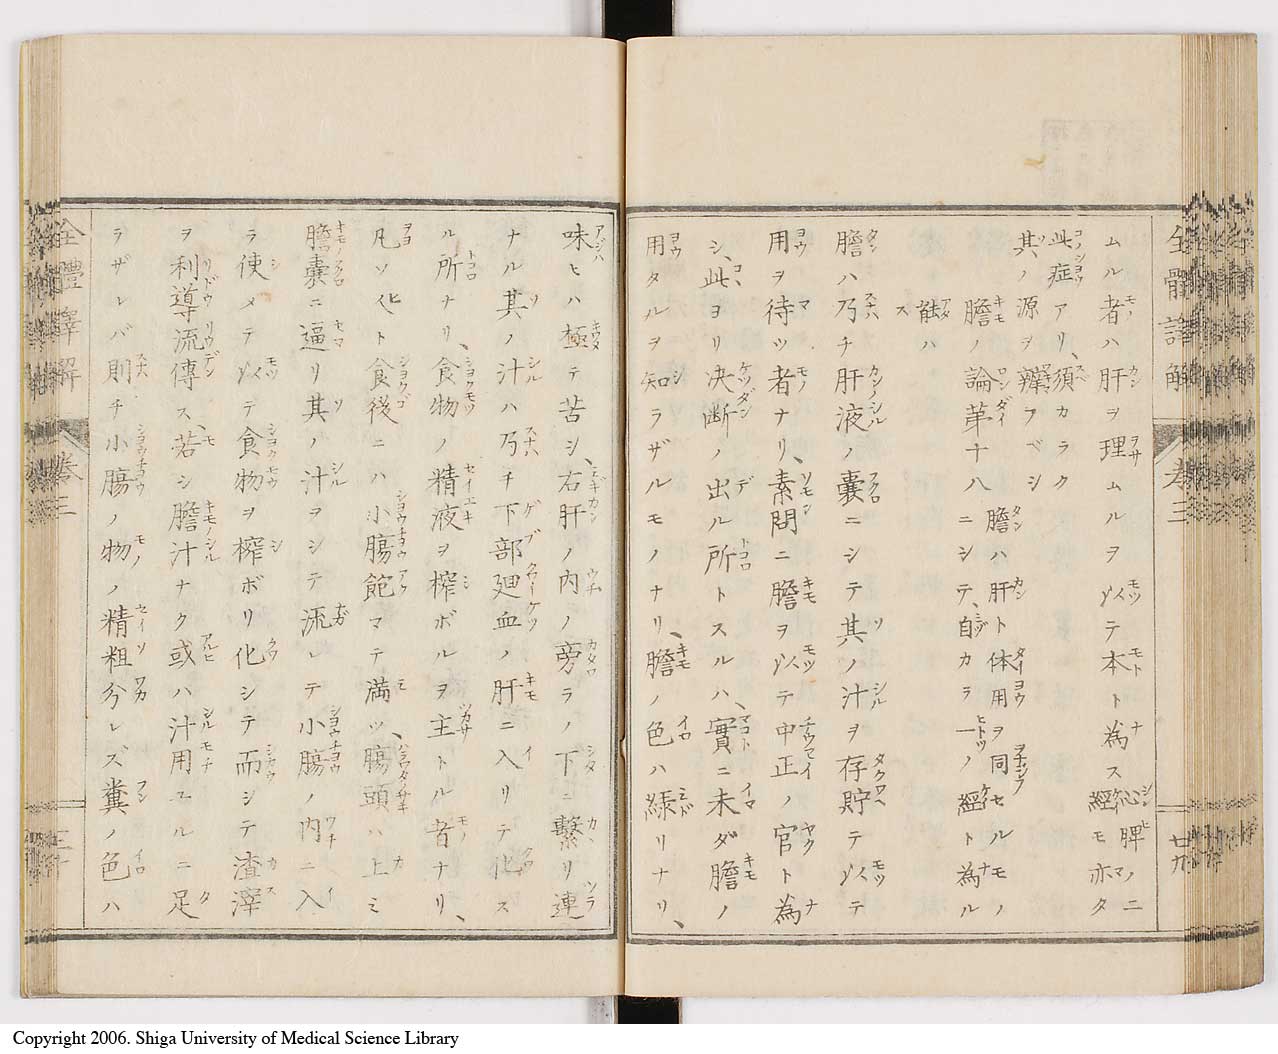 全體譯解 卷三 廿九
ムル者ハ肝ヲ理ムルヲ以テ本ト為ス心脾ノ二經モ亦タ
此症アリ、須カラク其ノ源ヲ辨フベシ
膽ノ論第十八 膽ハ肝ト体用ヲ同セルモノニシテ、自カラ一ノ經ト為ル能ハス
膽ハ乃チ肝液ノ嚢ニシテ其ノ汁ヲ存貯テ以テ
用ヲ待ツ者ナリ、素問ニ膽ヲ以テ中正ノ官ト為
シ、此ヨリ决断ノ出ル所トスルハ、實ニ未ダ膽ノ
用タルヲ知ラザルモノナリ、膽ノ色ハ緑リナリ、
味ヒハ極テ苦シ、右肝ノ内ノ旁ラノ下ニ繋リ連
ナル其ノ汁ハ乃チ下部廻血ノ肝ニ入リテ化ス
ル所ナリ、食物ノ精液ヲ榨ボルヲ主トル者ナリ、
凡ソ人ト食後ニハ小膓飽マテ満ツ、膓頭ハ上ミ
膽嚢ニ逼リ其ノ汁ヲシテ流レテ小膓ノ内ニ入
ラ使メテ以テ食物ヲ榨ボリ化シテ而シテ渣滓
ヲ利導流傳ス、若シ膽汁ナク或ハ汁用ユルニ足
ラザレバ則チ小膓ノ物ノ精粗分レズ糞ノ色ハ
全體譯解 卷三 三十
Copyright 2006. Shiga University of Medical Science Library